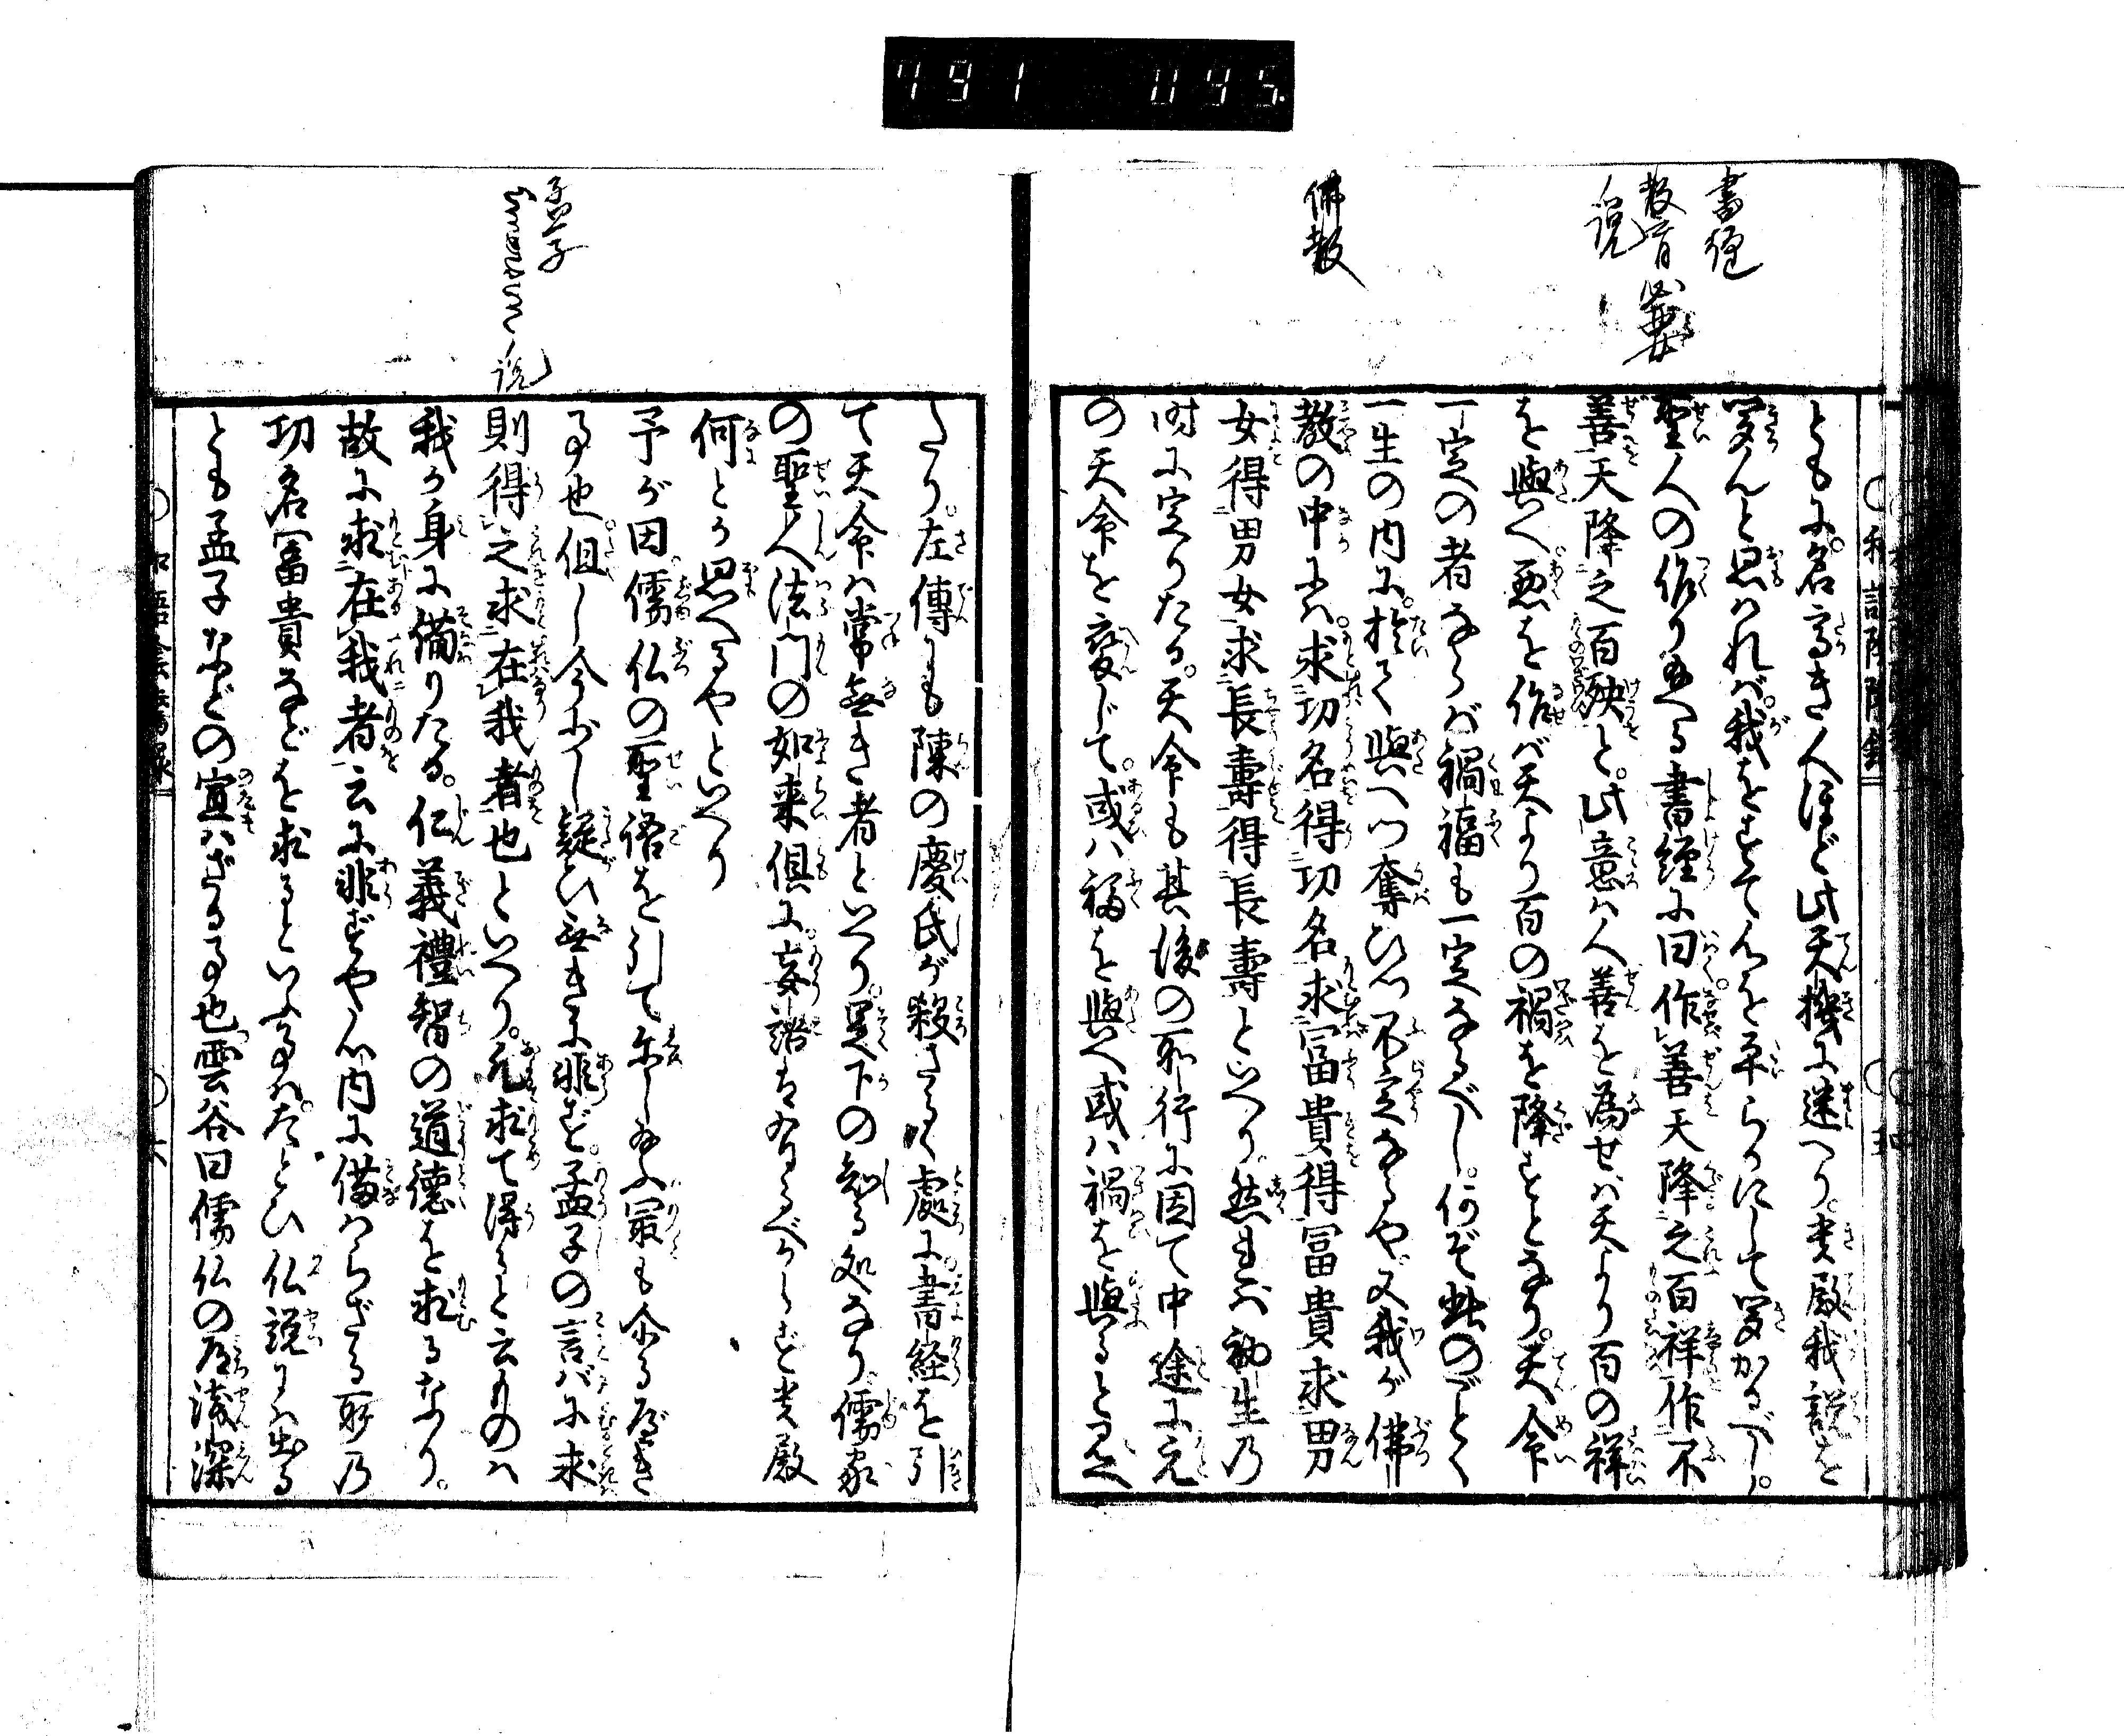 書經
教育必要
ノ説
佛教
ともに名高き人ほど此天機に迷へり貴殿我説を
聞んと思はれば我をすてん心を平らかにして聞かるべし
聖人の作り玉へる書經に曰作善天降之百祥作不
善天降之百殃と此意は人善を為せば天より百の祥
を與へ悪を作ば天より百の禍を降すとなり天命
一定の者ならば禍福も一定なるべし何ぞ此のごとく
一生の内に於て與へつ奪ひつ不定なるや又我が佛
教の中には求功名得功名求冨貴得冨貴求男
女得男女求長壽得長壽といへり然れば初生の
時に定りたる天命も其後の所行に因て中途に元
の天命を変じて或は福を與へ或は禍を與ると見へ
孟子
説
たり左傳にも陳の慶氏が殺さるゝ處に書経を引
て天命は常無き者といへり足下の知る処なり儒家
の聖人法門の如来倶に妄語は有るべからず貴殿
何とか思へるやといへり
予が因儒仏の聖語を引て示し玉ふ最も余る処き
事也但し今少し疑ひ無きに非ず孟子の言ばに求
則得之求在我者也といへり凡求て得ると云ものは
我が身に備りたる仁義禮智の道德を求るなり
故に求在我者云に非ずや心内に備はらざる所の
功名冨貴などを求るといふ事はたとひ仏説には出る
とも孟子などの宣はざる事也雲谷曰儒仏の乃淺深